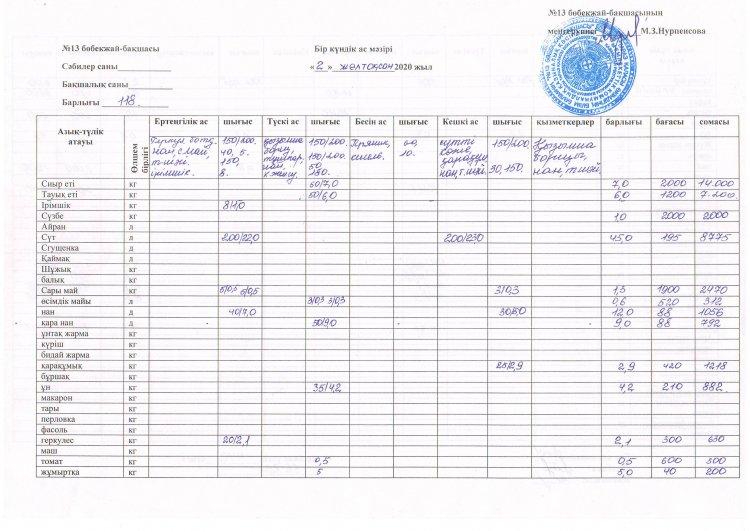 №13 бөбекжай-бақшасының
меңгерушісі М.З.Нурпеисова
№13 бөбекжай-бақшасы Бір күндік ас мәзірі
Сәбилер саны «2» желтоқсан 2020 жыл
Бақшалық саны
Барлығы 118
Азық-түлік атауы Өлшем бірлігі Ертеңгілік ас шығыс Түскі ас шығыс Бесін ас шығыс Кешкі ас шығыс қызметкерлер барлығы бағасы сомасы
150/200. 150/200. 150/200.
нан, с май, 40, 5. 150/200.
150, 50 10. 30, 150, нан, т.шәй.
ірімшік. 8. 150.
Сиыр еті кг 60/7,0 7,0 2000 14.000
Тауық еті кг 50/6,0 6,0 1200 7.200
Ірімшік кг 8/1,0
Сүзбе кг 10 2000 2000
Айран л
Сүт л 200/22,0 200/23,0 45,0 195 8775
Сгущенка д
Қаймақ л
Шұжық кг
балық кг
Сары май кг 5/0,5 3/0,3 1,3 1900 2470
өсімдік майы л 3/0,3 3/0,3 0,6 520 312
нан д 40/7,0 30/5,0 12,0 88 1056
қара нан кг 50/9,0 9,0 88 792
ұнтақ жарма кг
күріш кг
бидай жарма кг
қарақұмық кг 25/2,9 2,9 420 1218
бұршақ кг
ұн кг 35/4,2 4,2 210 882
макарон кг
тары кг
перловка кг
фасоль кг
геркулес кг 20/2,1 2,1 300 630
маш кг
томат кг 0,5 0,5 600 300
жұмыртка кг 5 5,0 40 200